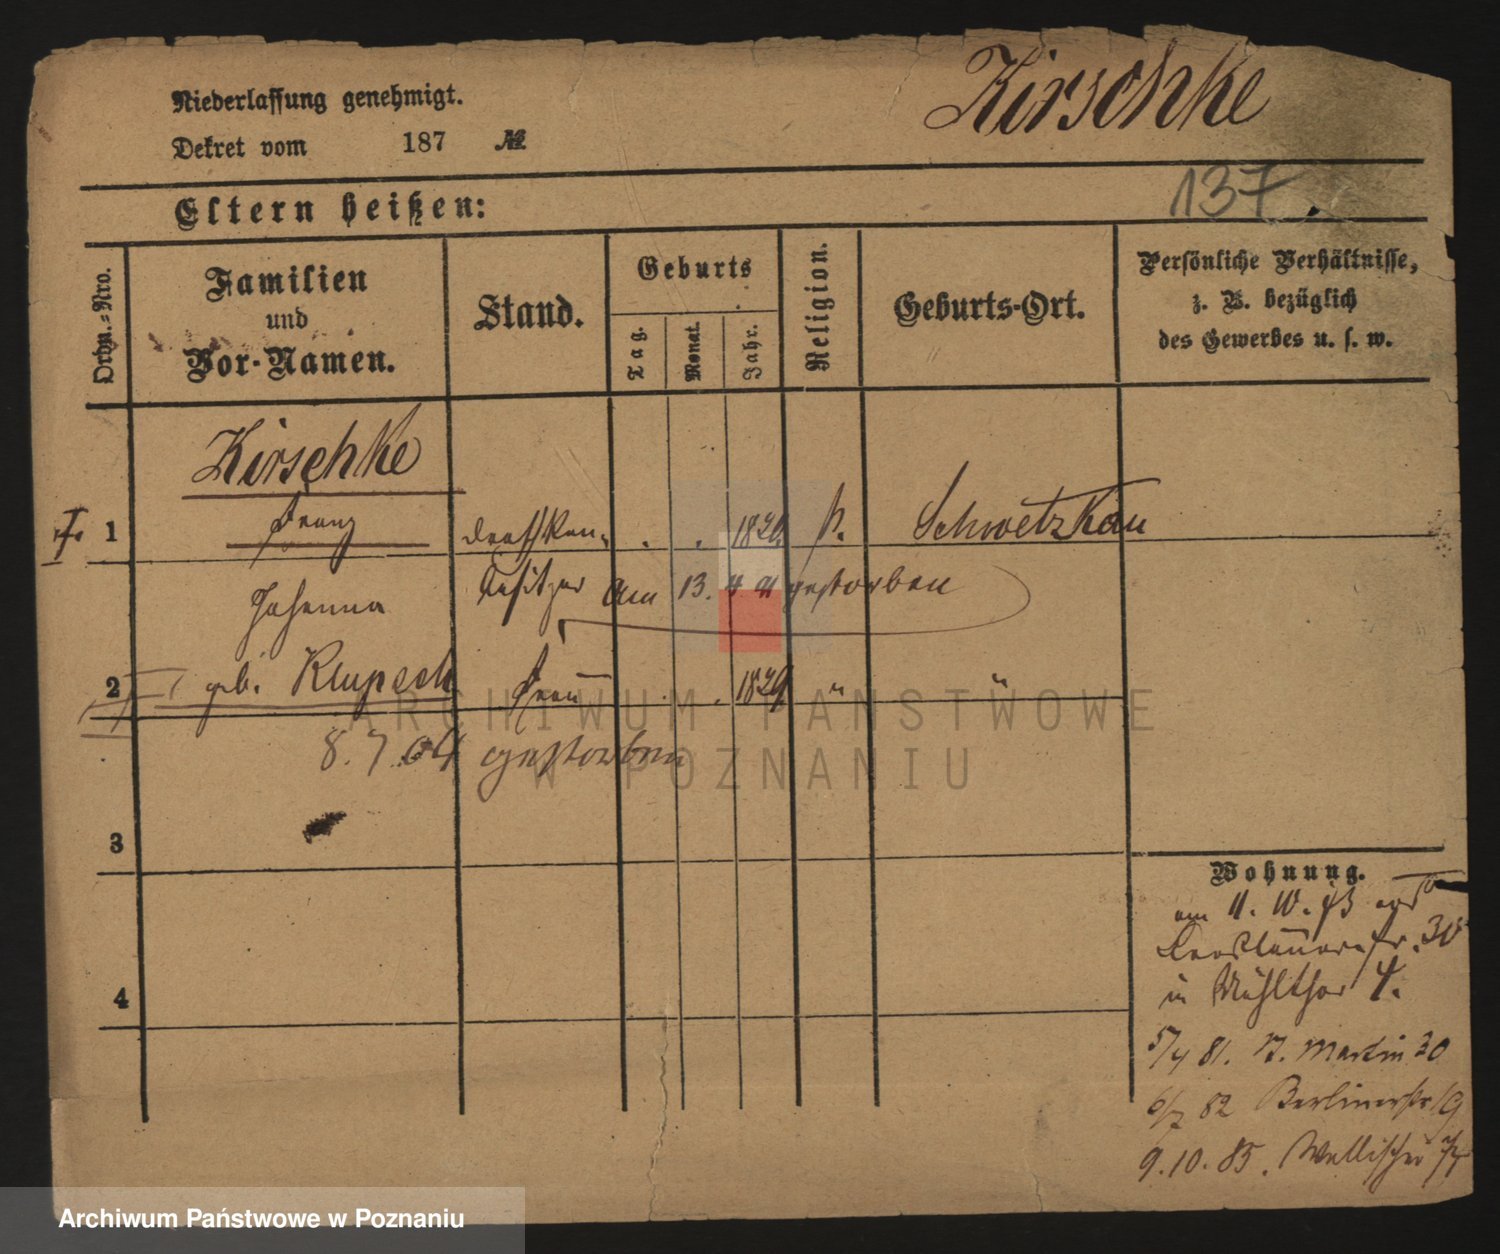 Kirschke
Niederlassung genehmigt.
Dekret vom 187 №
137
Eltern heißen:
Ordn.-Nro.
Familien
und
Vor-Namen.
Stand.
Geburts
Tag.
Monat.
Jahr.
Religion.
Geburts-Ort.
Persönliche Verhältnisse,
z. B. bezüglich
des Gewerbes u. s. w.
Kirschke
1 Franz
Schwetzkau
besitzer am 13. 4. gestorben
Johanna
2 geb. Klupsch Frau 1829 " "
8. 7. 04 gestorben
3
4
Wohnung.
am 11. 10. 73
30
in Mühlthor 4.
5/4 81. St. Martin 30
6/7 82 Berlinerstr 19
9. 10. 85. Wallischei
ARCHIWUM PAŃSTWOWE
W POZNANIU
Archiwum Państwowe w Poznaniu